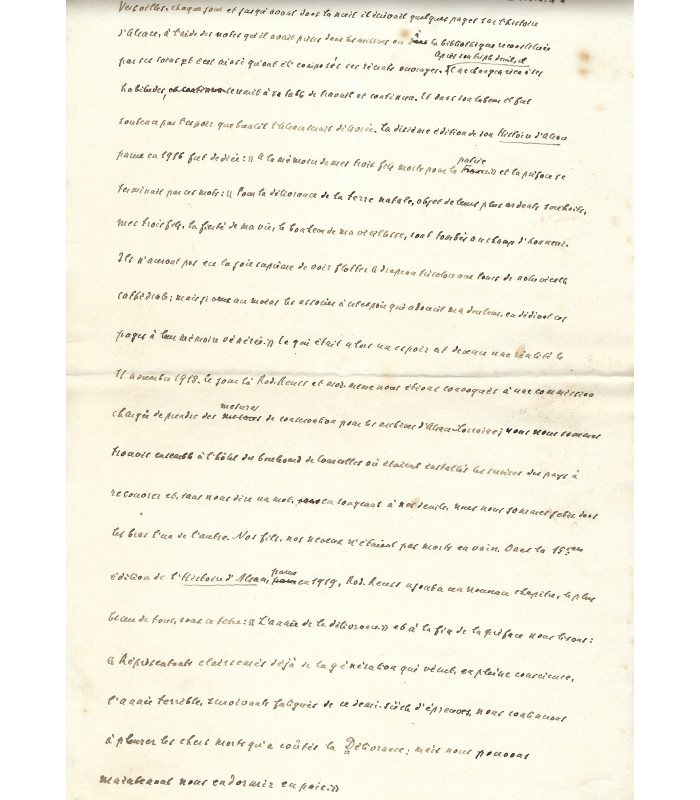 Versailles, chaque jour et jusqu'avant dans la nuit il écrivait quelques pages sur l'histoire
d'Alsace, à l'aide des notes qu'il avait prises dans les archives ou dans la bibliothèque reconstituée
par ses soins et c'est ainsi qu'ont été composés ses récents ouvrages. Après son triple deuil, il ne changea rien à ses
habitudes, se remit à sa table de travail et continua. Et dans son labeur il fut
soutenu par l'espoir que bientôt l'Alsace serait délivrée. La dixième édition de son Histoire d'Alsace
parue en 1916 fut dédiée: « A la mémoire de mes trois fils morts pour la patrie » et la préface se
terminait par ces mots: « Pour la délivrance de la terre natale, objet de leurs plus ardents souhaits,
mes trois fils, la fierté de ma vie, le bonheur de ma vieillesse, sont tombés au champ d'honneur.
Ils n'auront pas eu la joie suprême de voir flotter le drapeau tricolore aux tours de notre vieille
cathédrale; mais je veux au moins les associer à cet espoir qui adoucit ma douleur, en dédiant ces
pages à leur mémoire vénérée. » Ce qui était alors un espoir est devenu une réalité le
11 novembre 1918. Ce jour là Rod. Reuss et moi-même nous étions convoqués à une commission
chargée de prendre des mesures de conservation pour les archives d'Alsace-Lorraine; nous nous sommes
trouvés ensemble à l'hôtel du boulevard de Courcelles où étaient installés les services des pays à
recouvrer et, sans nous dire un mot, en songeant à nos deuils, nous nous sommes jetés dans
les bras l'un de l'autre. Nos fils, nos neveux n'étaient pas morts en vain. Dans la 15ème
édition de l'Histoire d'Alsace, parue en 1919, Rod. Reuss ajouta un nouveau chapitre, le plus
beau de tous, sous ce titre: « L'année de la délivrance » et à la fin de la préface nous lisons:
« Représentants clairsemés déjà de la génération qui vécut, en pleine conscience,
l'année terrible, survivants fatigués de ce demi-siècle d'épreuves, nous continuons
à pleurer les chers morts qu'a coûtés la Délivrance; mais nous pouvons
maintenant nous endormir en paix. »